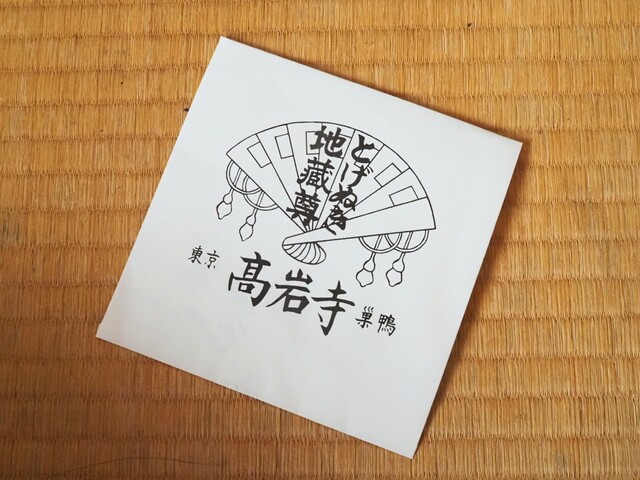 とげぬき
地蔵尊
東京
高岩寺
巣鴨